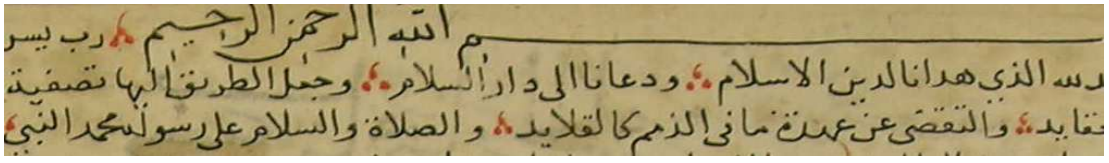 بسم الله الرحمن الرحيم رب يسر
الذي هدانا لدين الاسلام ودعانا الى دار السلام وجعل الطريق اليها تصفية
والتقضى عن عهدة ما في الذمم كالقلايد والصلاة والسلام على رسوله محمد النبي